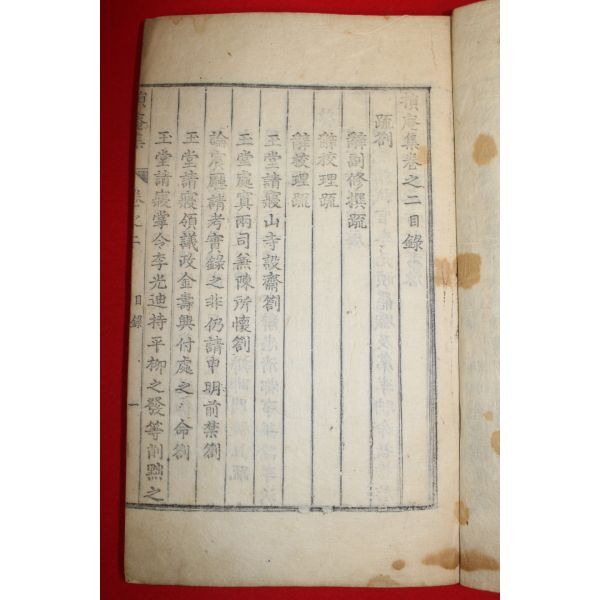 庵集卷之二目錄
疏劄
辭副修撰疏
辭校理疏
辭校理疏
玉堂請寢山寺設齋劄
玉堂處置兩司無陳所懷劄
論廟廳請考實錄之非仍請申明前禁劄
玉堂請寢領議政金壽興付處之命劄
玉堂請寢掌令李光迪持平柳之發等削黜之
庵集 卷之二 目錄 一